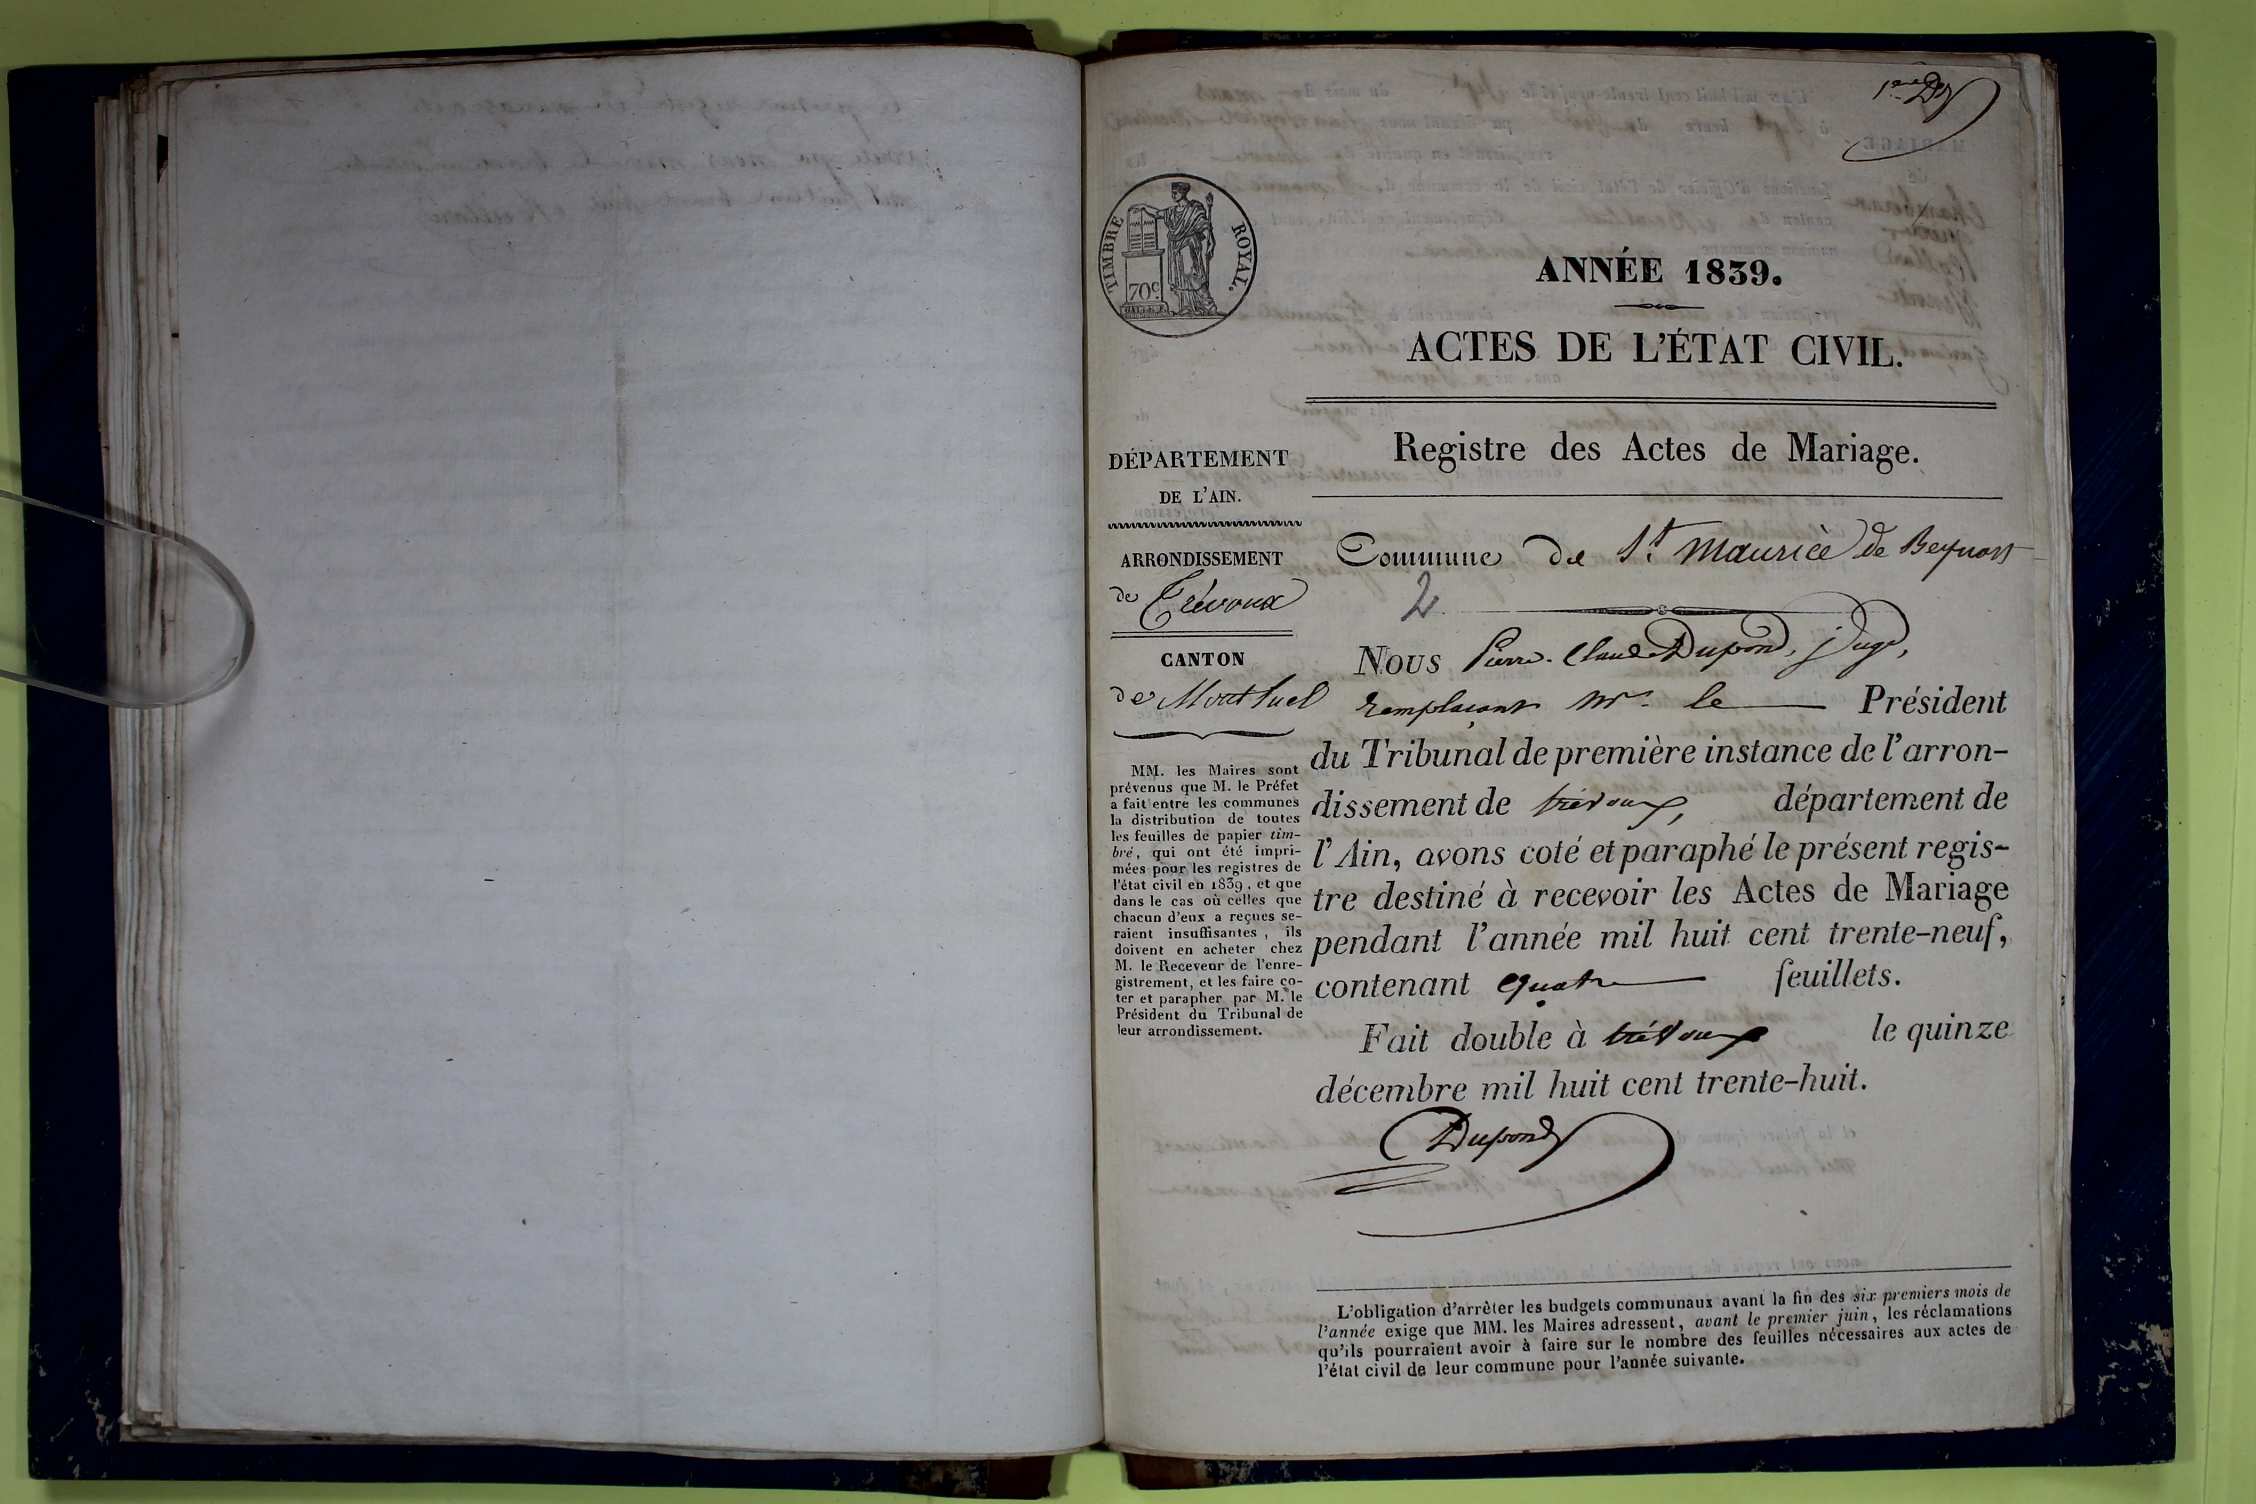 1er D
TIMBRE ROYAL.
70c.
ANNÉE 1839.
ACTES DE L'ÉTAT CIVIL.
Registre des Actes de Mariage.
DÉPARTEMENT
DE L'AIN.
ARRONDISSEMENT
de Trévoux
CANTON
de Montluel
MM. les Maires sont
prévenus que M. le Préfet
a fait entre les communes
la distribution de toutes
les feuilles de papier tim-
bré, qui ont été impri-
mées pour les registres de
l'état civil en 1839, et que
dans le cas où celles que
chacun d'eux a reçues se-
raient insuffisantes, ils
doivent en acheter chez
M. le Receveur de l'enre-
gistrement, et les faire co-
ter et parapher par M. le
Président du Tribunal de
leur arrondissement.
Commune de St. Maurice de Beynost
2
Nous Pierre-Claude Dupond, juge,
remplaçant Mr. le Président
du Tribunal de première instance de l'arron-
dissement de trévoux, département de
l'Ain, avons coté et paraphé le présent regis-
tre destiné à recevoir les Actes de Mariage
pendant l'année mil huit cent trente-neuf,
contenant quatre feuillets.
Fait double à trévoux le quinze
décembre mil huit cent trente-huit.
Dupond
L'obligation d'arrêter les budgets communaux avant la fin des six premiers mois de
l'année exige que MM. les Maires adressent, avant le premier juin, les réclamations
qu'ils pourraient avoir à faire sur le nombre des feuilles nécessaires aux actes de
l'état civil de leur commune pour l'année suivante.